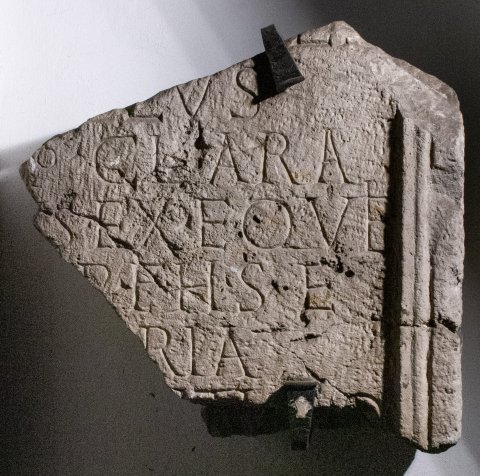 VS
CLARA
EXEQVE
EHSE
RIA